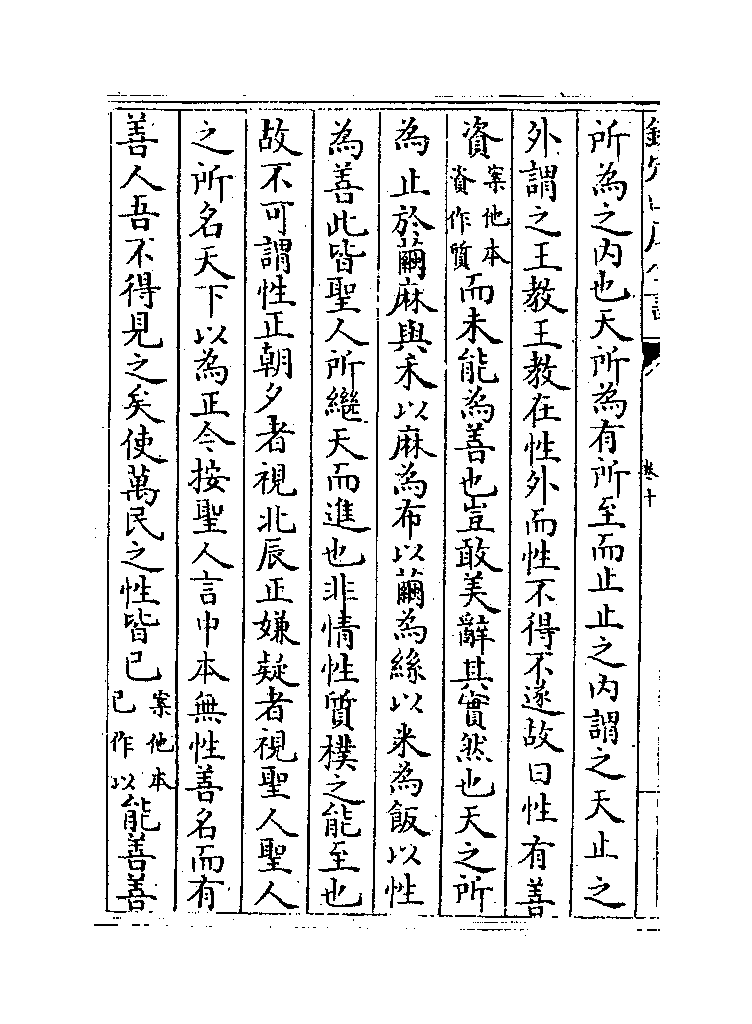 所為之内也天所為有所至而止止之内謂之天止之
外謂之王教王教在性外而性不得不遂故曰性有善
資案他本資作質而未能為善也豈敢美辭其實然也天之所
為止於繭麻與禾以麻為布以繭為絲以米為飯以性
為善此皆聖人所繼天而進也非情性質樸之能至也
故不可謂性正朝夕者視北辰正嫌疑者視聖人聖人
之所名天下以為正今按聖人言中本無性善名而有
善人吾不得見之矣使萬民之性皆已案他本已作以能善善
卷十